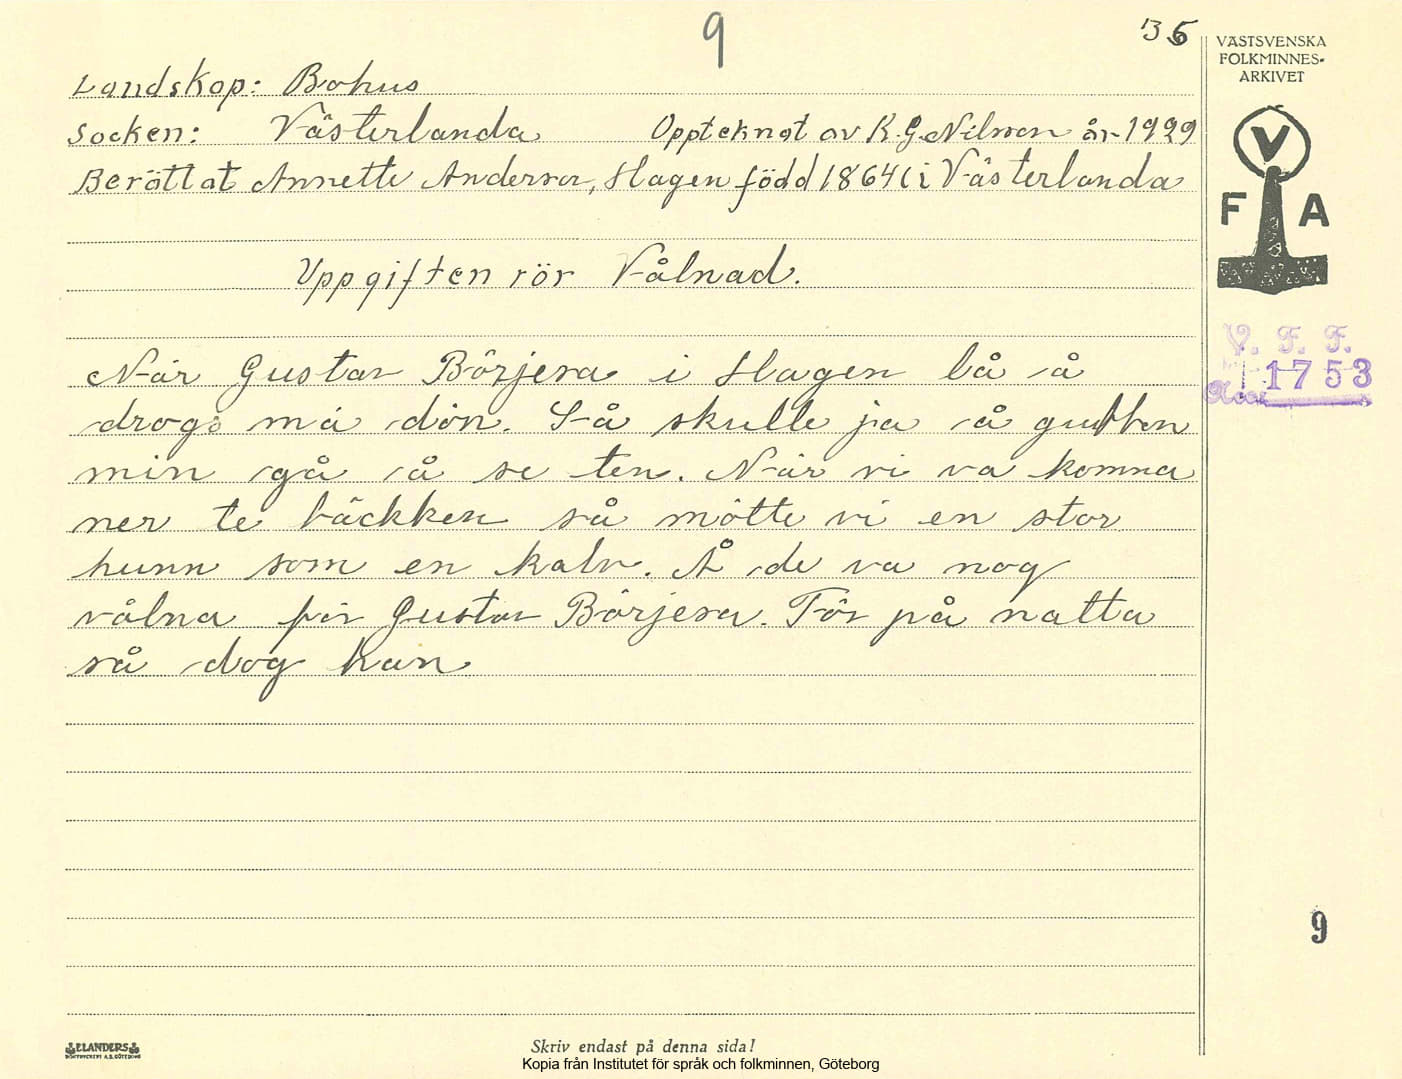 9
35
VÄSTSVENSKA
FOLKMINNES-
ARKIVET
Landskap: Bohus
Socken: Västerlanda Upptecknat av K. G. Nilsson år 1929
Berättat Annette Anderson, Hagen född 1864 i Västerlanda
Uppgiften rör Vålnad.
När Gustav Börjesa i Hagen lå å
drogs må dön. Så skulle ja å gubben
min gå å se ten. När vi va komna
ner te bäckken så mötte vi en stor
hunn som en kalv. Å de va nog
vålna för Gustav Börjesa. För på natta
så dog han
V
F A
V. F. F.
Acc. 1753
9
ELANDERS
BOKTRYCKERI A.B. GÖTEBORG
Skriv endast på denna sida!
Kopia från Institutet för språk och folkminnen, Göteborg